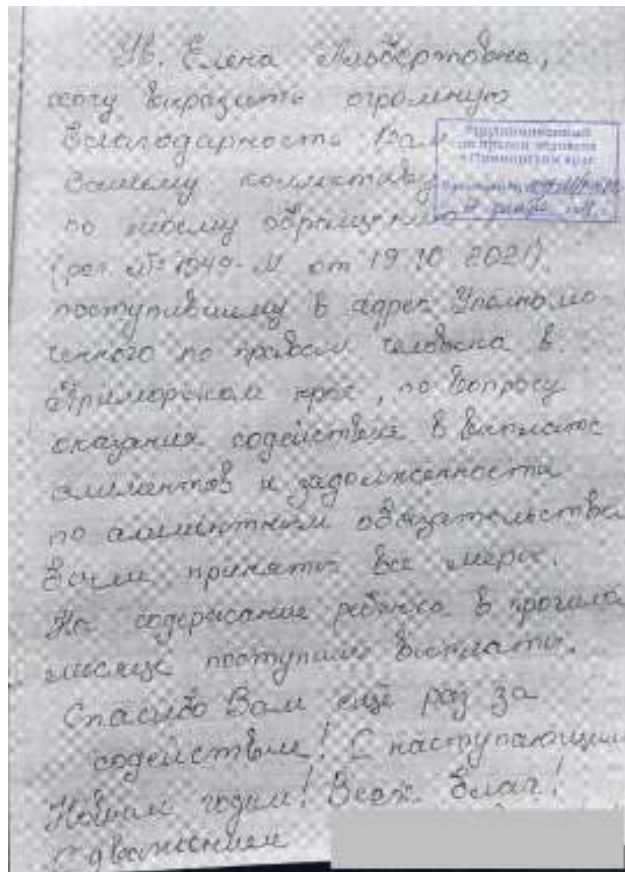 Ув. Елена Альбертовна,
хочу выразить огромную
благодарность Вам
Вашему коллективу
по моему обращению
(рег. № 1949-М от 19.10 2021),
поступившему в адрес Уполномо-
ченного по правам человека в
Приморском крае, по вопросу
оказания содействия в выплате
алиментов и задолженности
по алиментным обязательства
Вами приняты все меры.
На содержание ребенка в прошло
месяце поступили выплаты.
Спасибо Вам ещё раз за
содействие! С наступающим
Новым годом! Всех благ!
С уважением
Уполномоченный
по правам человека
в Приморском крае